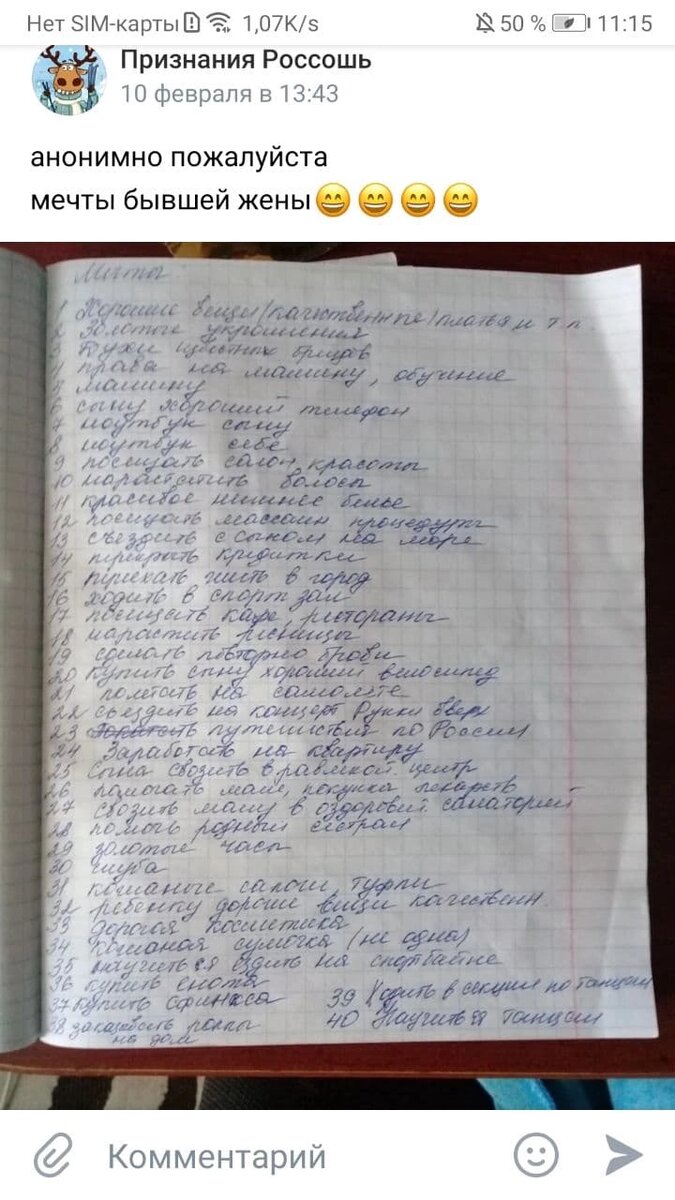 Нет SIM-карты 1,07K/s 50 % 11:15
Признания Россошь
10 февраля в 13:43
анонимно пожалуйста
мечты бывшей жены😄😄😄😄
Мечты
1 Хорошие вещи (качественные) платья и т.п.
2 Золотые украшения
3 Духи известных брендов
4 права на машину, обучение
5 машину
6 сыну хороший телефон
7 ноутбук сыну
8 ноутбук себе
9 посещать салон красоты
10 нарастить волосы
11 красивое нижнее белье
12 посещать массаж процедуры
13 съездить с сыном на море
14 перекрыть кредитки
15 переехать жить в город
16 ходить в спорт зал
17 посещать кафе, рестораны
18 нарастить ресницы
19 сделать повторно брови
20 купить сыну хороший велосипед
21 полетать на самолете
22 съездить на концерт Руки вверх
23 путешествия по России
24 Заработать на квартиру
25 Сына сводить в развлекат. центр
26 помогать маме, покупка лекарств
27 свозить маму в оздоровит. санаторий
28 помочь родным сестрам
29 золотые часы
30 шуба
31 кожаные сапоги, туфли
32 ребенку дорогие вещи качественн.
33 дорогая косметика
34 кожаная сумочка (не одна)
35 научиться ездить на спортбайке
36 купить енота
37 купить сфинкса
38 заказывать роллы
на дом
39 Ходить в секцию по танцам
40 Научиться танцам
Комментарий